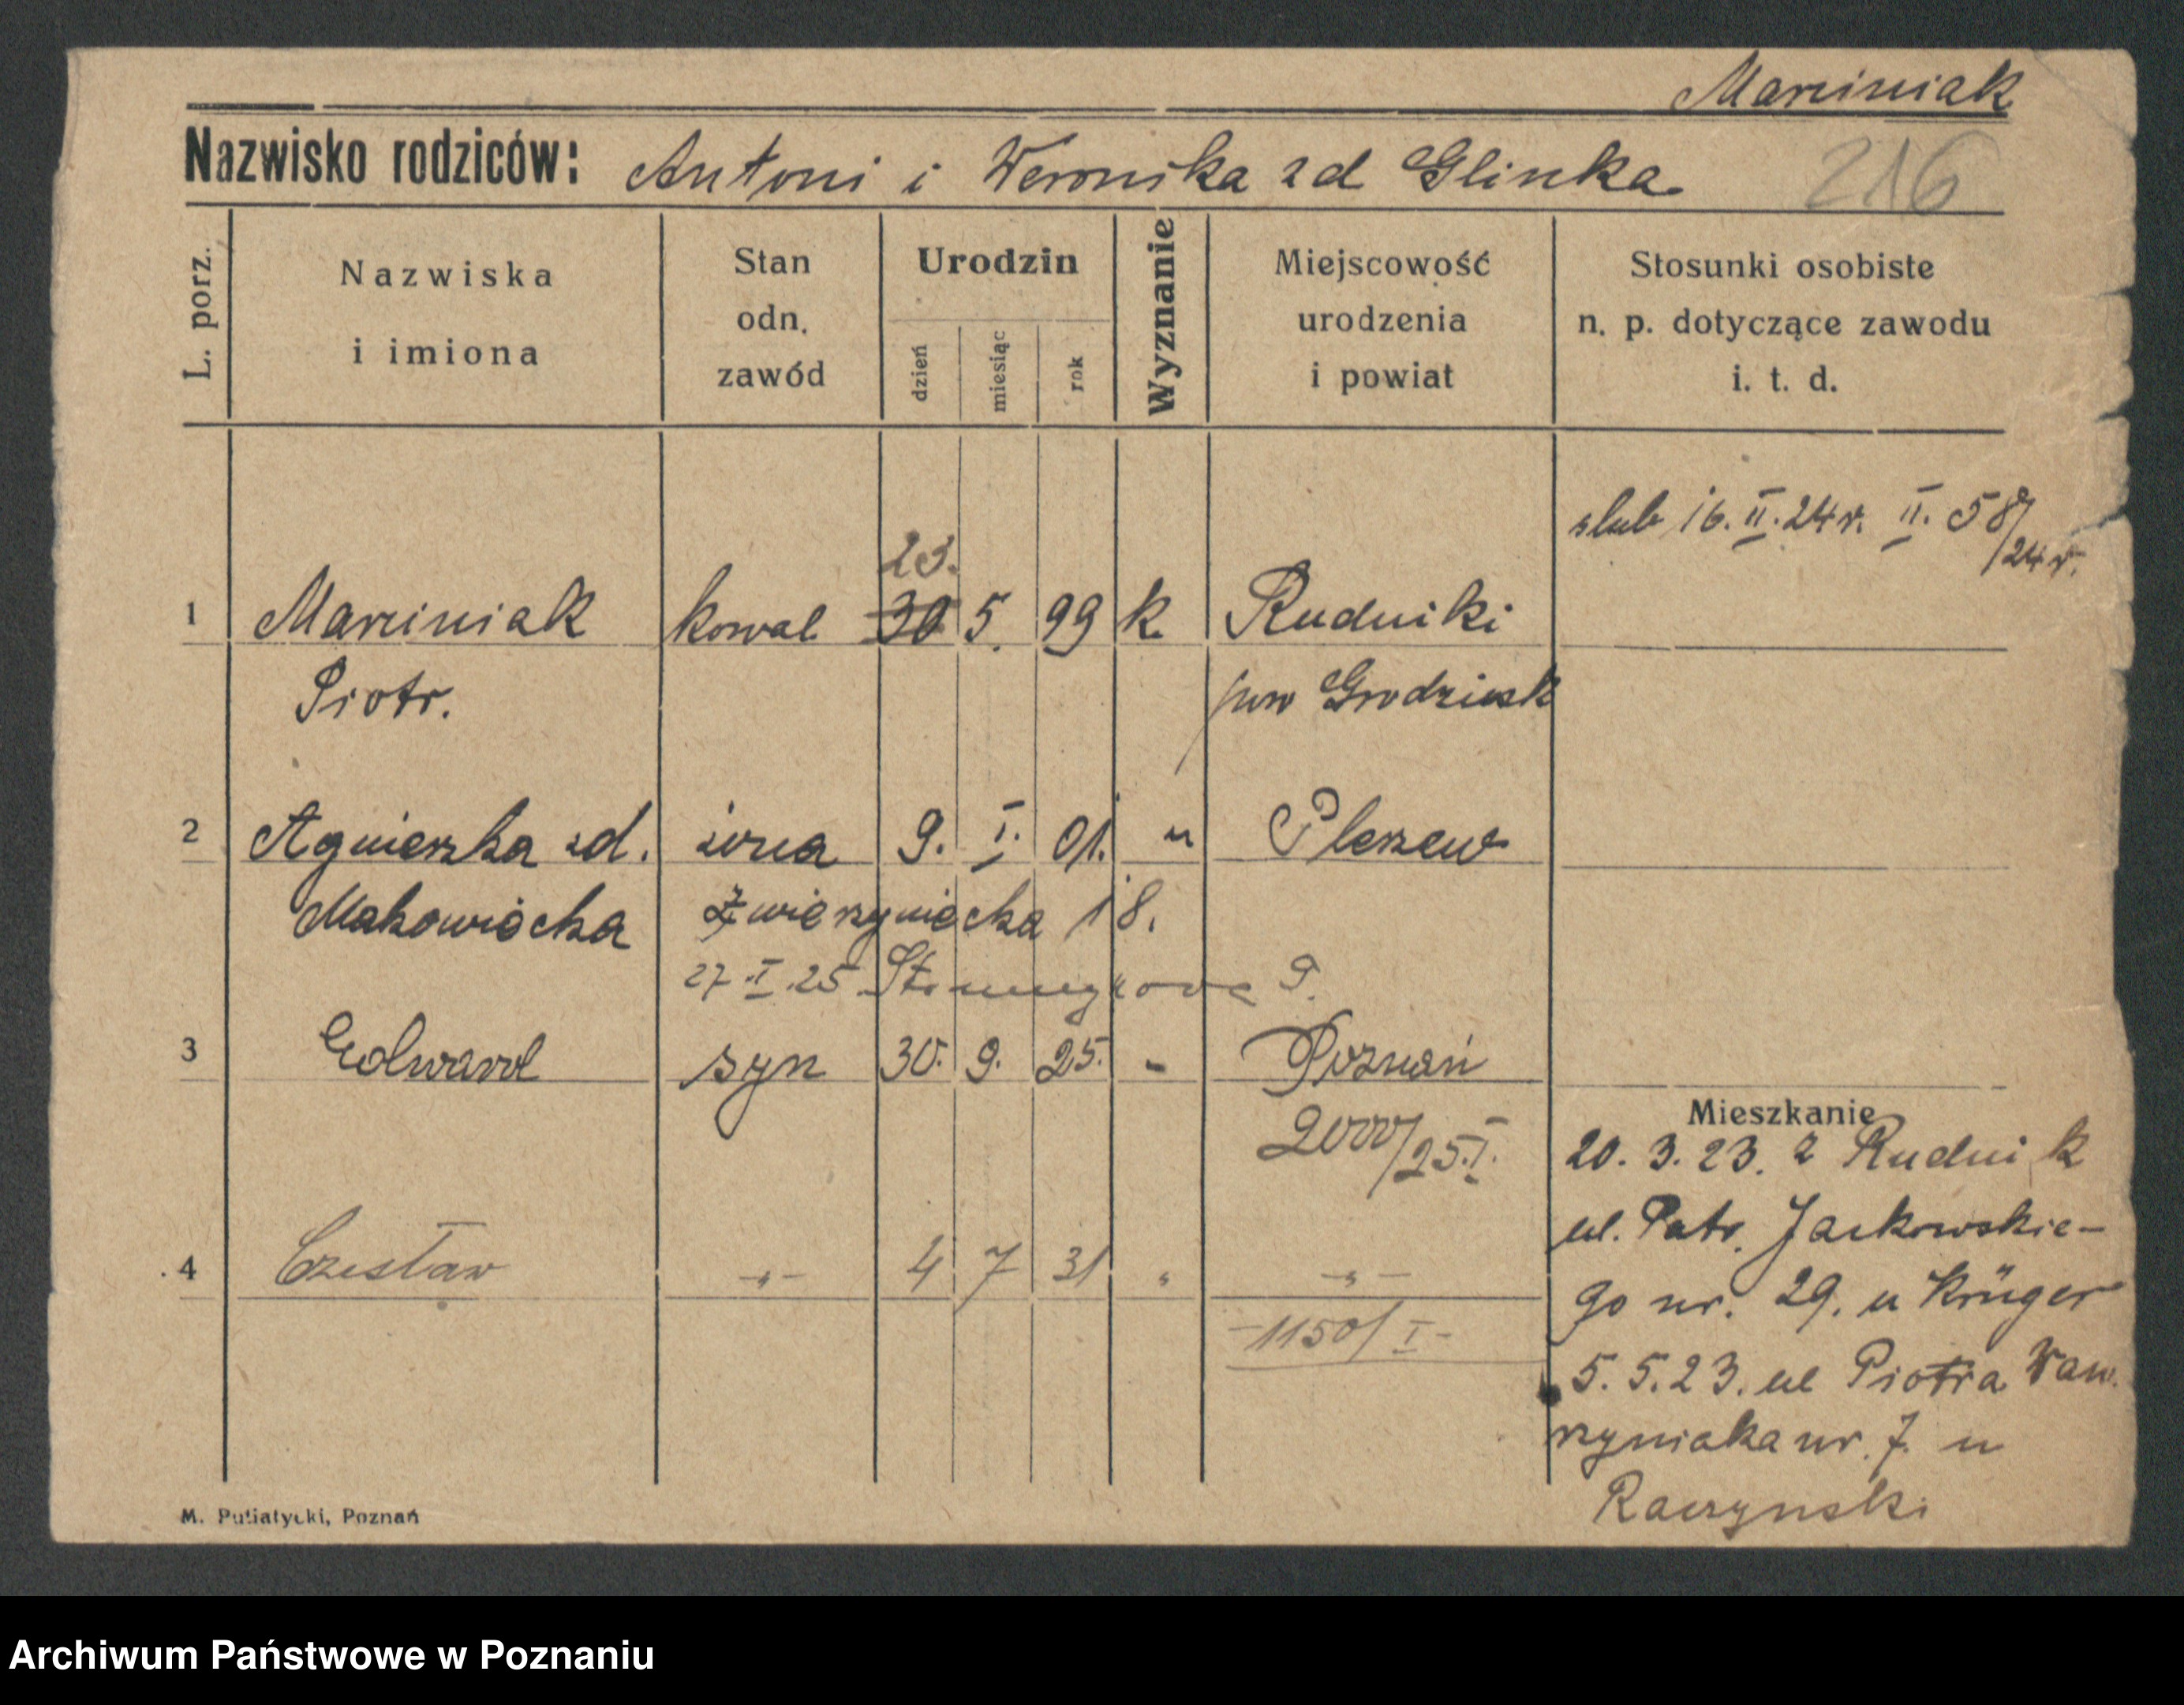 Marciniak
Nazwisko rodziców: Antoni i Weronika zd Glinka 216
L. porz.
Nazwiska i imiona
Stan odn. zawód
Urodzin
dzień
miesiąc
rok
Wyznanie
Miejscowość urodzenia i powiat
Stosunki osobiste n. p. dotyczące zawodu i. t. d.
slub 16. II. 24 r. II. 58/24 r.
23.
1 Marciniak kowal 30 5. 99 k. Rudniki
Piotr. pow Grodzisk
2 Agnieszka zd. żona 9. I. 01. " Pleszew
Makowiecka Zwierzyniecka 18.
27.I.25 9.
3 Edward syn 30. 9. 25. - Poznań
2000/25.I.
Mieszkanie
20. 3. 23. z Rudnik
ul. Patr. Jackowskie-
go nr. 29. u Krüger
5. 5. 23. ul Piotra Waw.
rzyniaka nr. 7. u
Raczynski
4 Czesław -"- 4 7 31 " -"-
-1150/I-
M. Putiatycki, Poznań
Archiwum Państwowe w Poznaniu